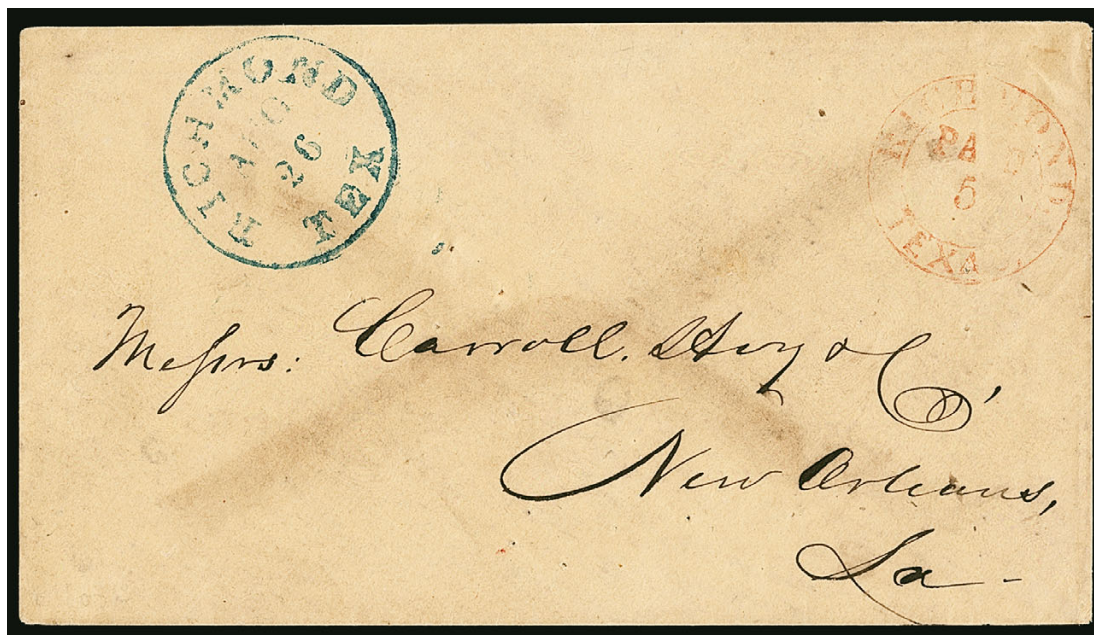 RICHMOND TEX
AUG
26
RICHMOND
PAID
5
TEXAS
Messrs: Carroll. Hoy & Co,
New Orleans,
La -